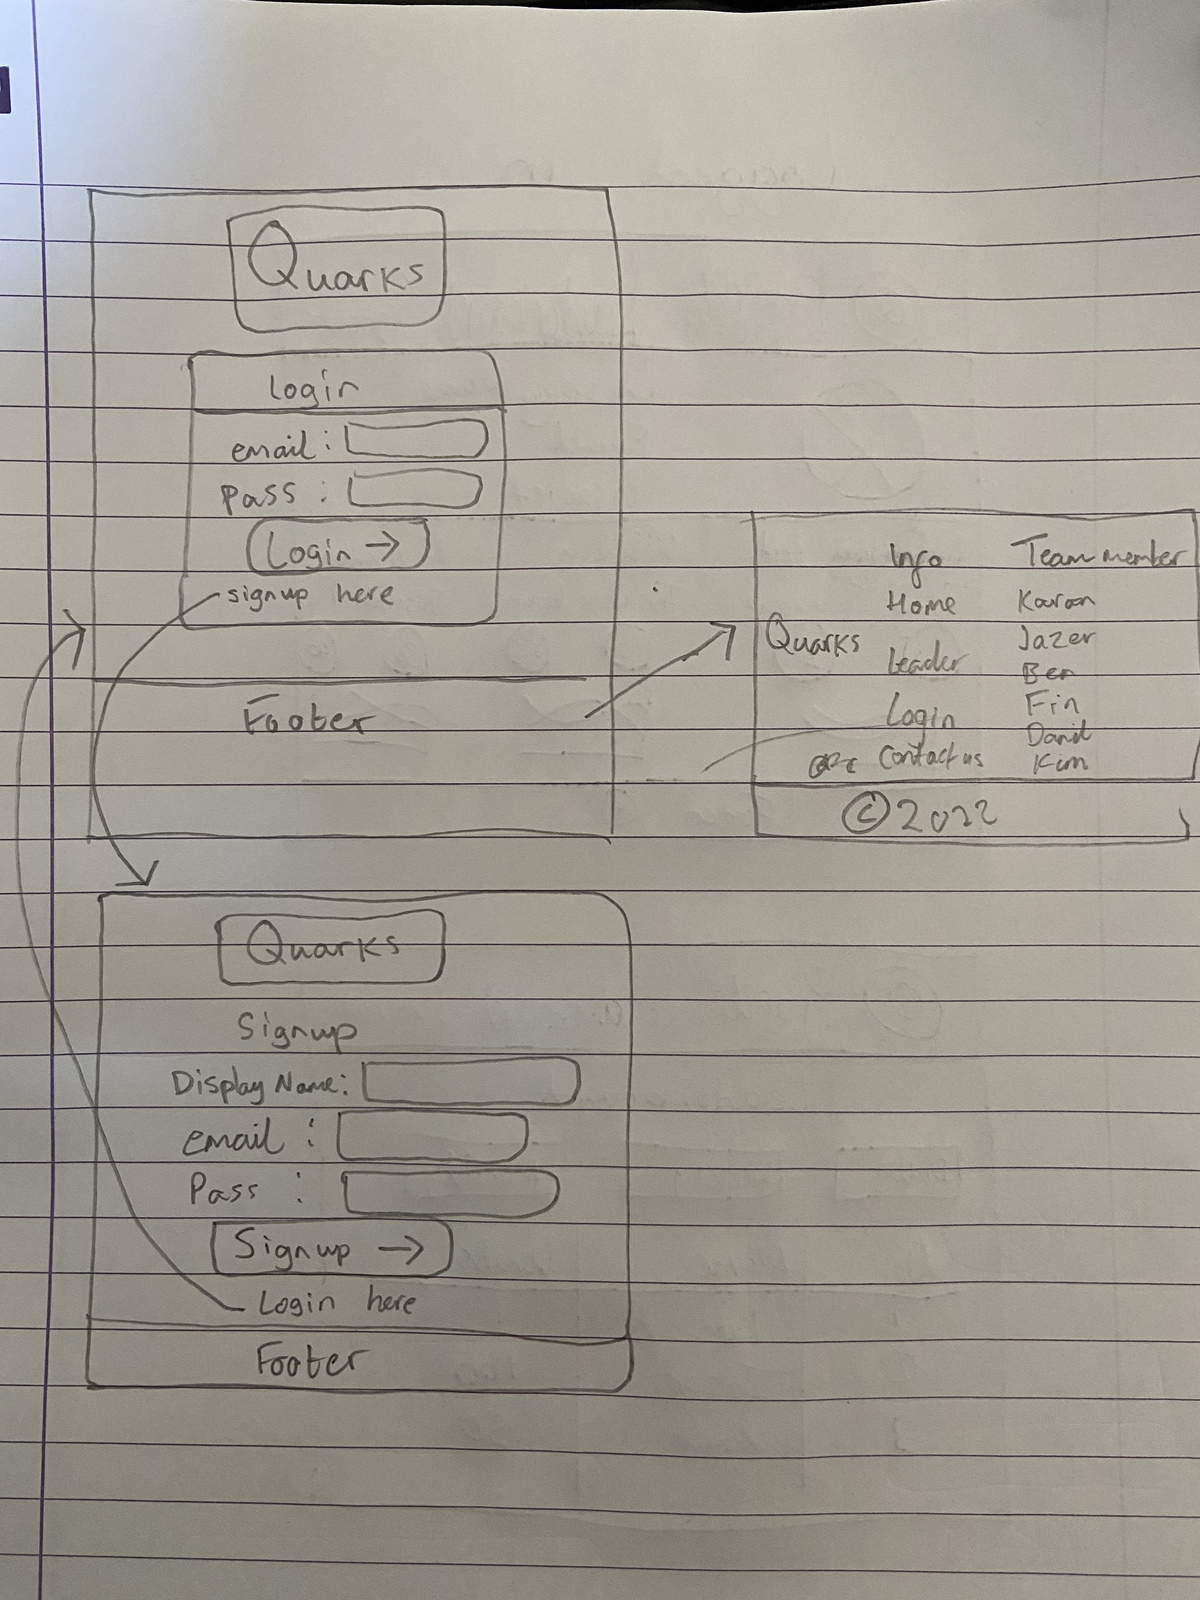 Quarks
Login
email :
Pass :
Login →
signup here
Footer
Info
Home
Leader
Login
Contact us
Quarks
Team member
Karan
Jazer
Ben
Fin
David
Kim
© 2022
Quarks
Signup
Display Name:
email :
Pass :
Signup →
Login here
Footer